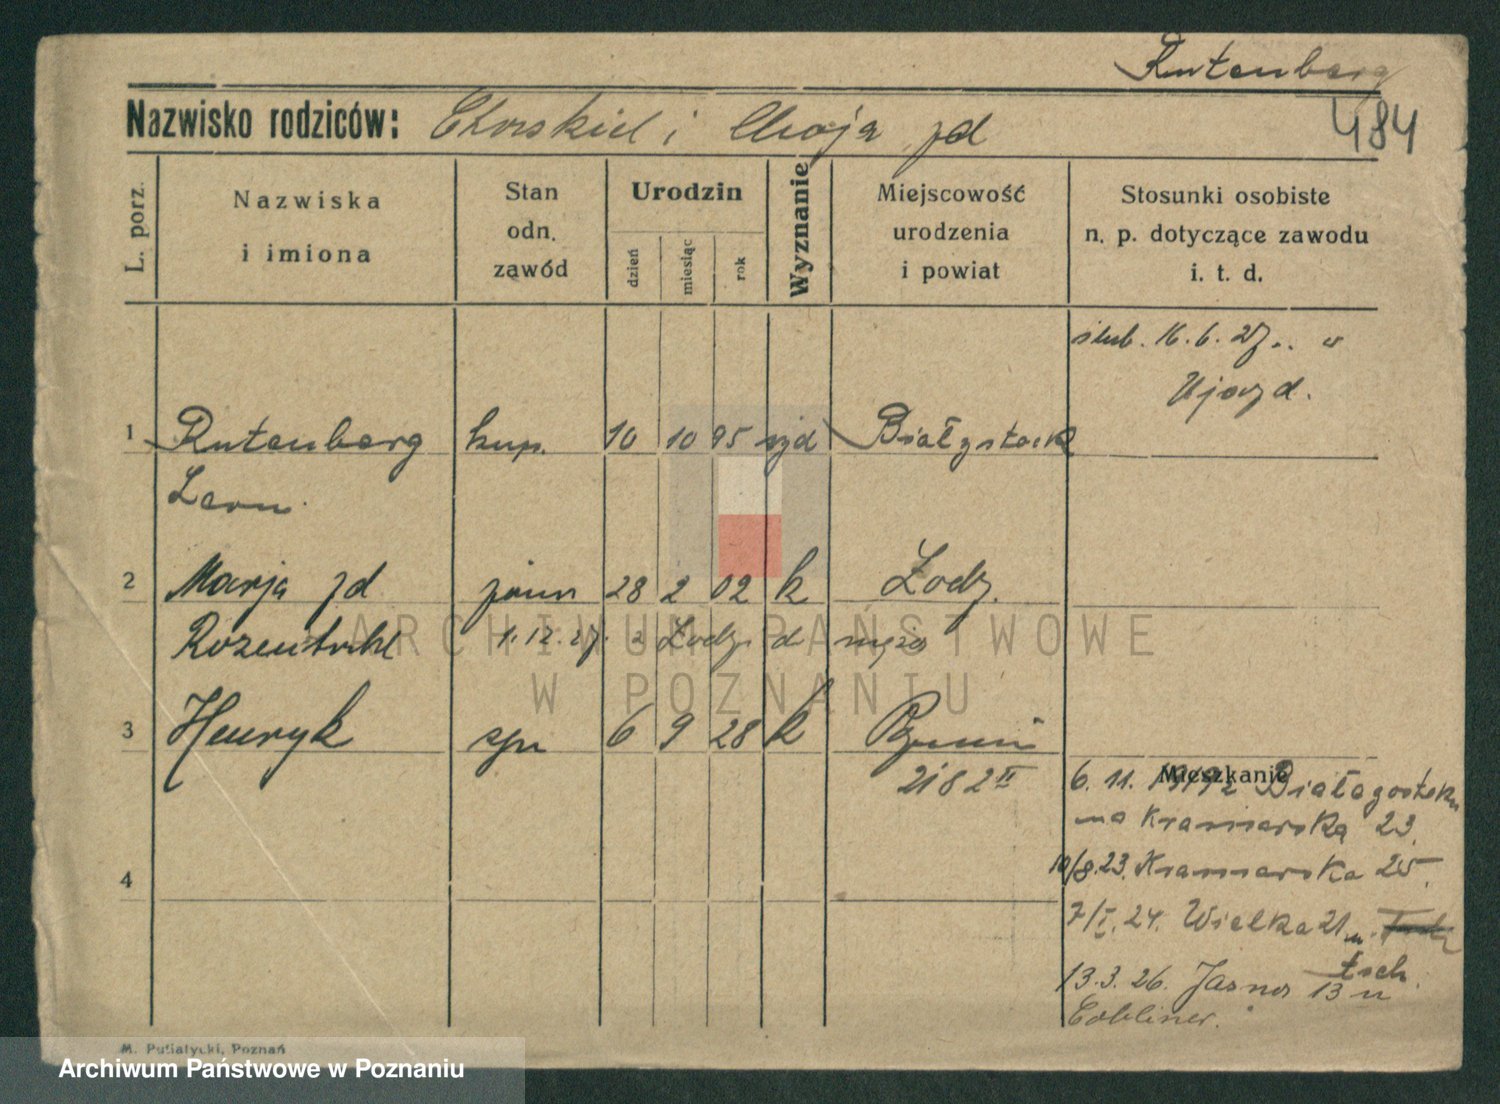 Rutenberg
484
Nazwisko rodziców: i Chaja zd
L. porz.
Nazwiska
i imiona
Stan
odn.
zawód
Urodzin
dzień
miesiąc
rok
Wyznanie
Miejscowość
urodzenia
i powiat
Stosunki osobiste
n. p. dotyczące zawodu
i. t. d.
ślub. 16. 6. 27
Ujazd.
1 Rutenberg kup. 10 10 95 Białystock
Leon
2 Marja zd 28 2 02 k Łodz.
1. 12. 27. z Łodzi do męża
3 Henryk syn 6 9 28 k
2182 II
Mieszkanie
6. 11. z
na Kramarską 23.
10/8.23. Kramarska 25.
4
7/I. 24. Wielka 21
13. 3. 26. Jasna 13 u
Cobliner.
M. Putiatycki, Poznań
ARCHIWUM PAŃSTWOWE
W POZNANIU
Archiwum Państwowe w Poznaniu